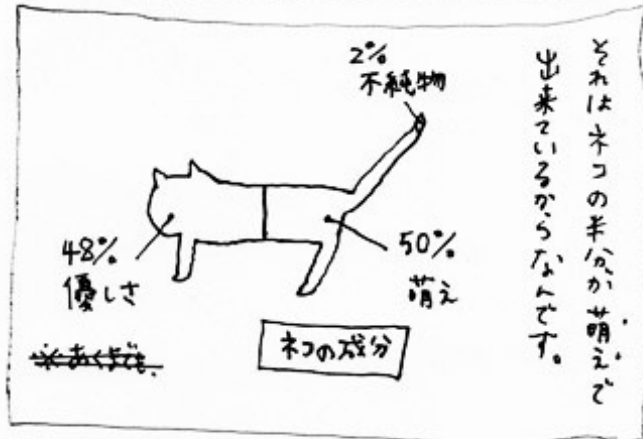 それはネコの半分が萌えで
出来ているからなんです。
2%
不純物
48%
優しさ
50%
萌え
ネコの成分
※あくまでも、